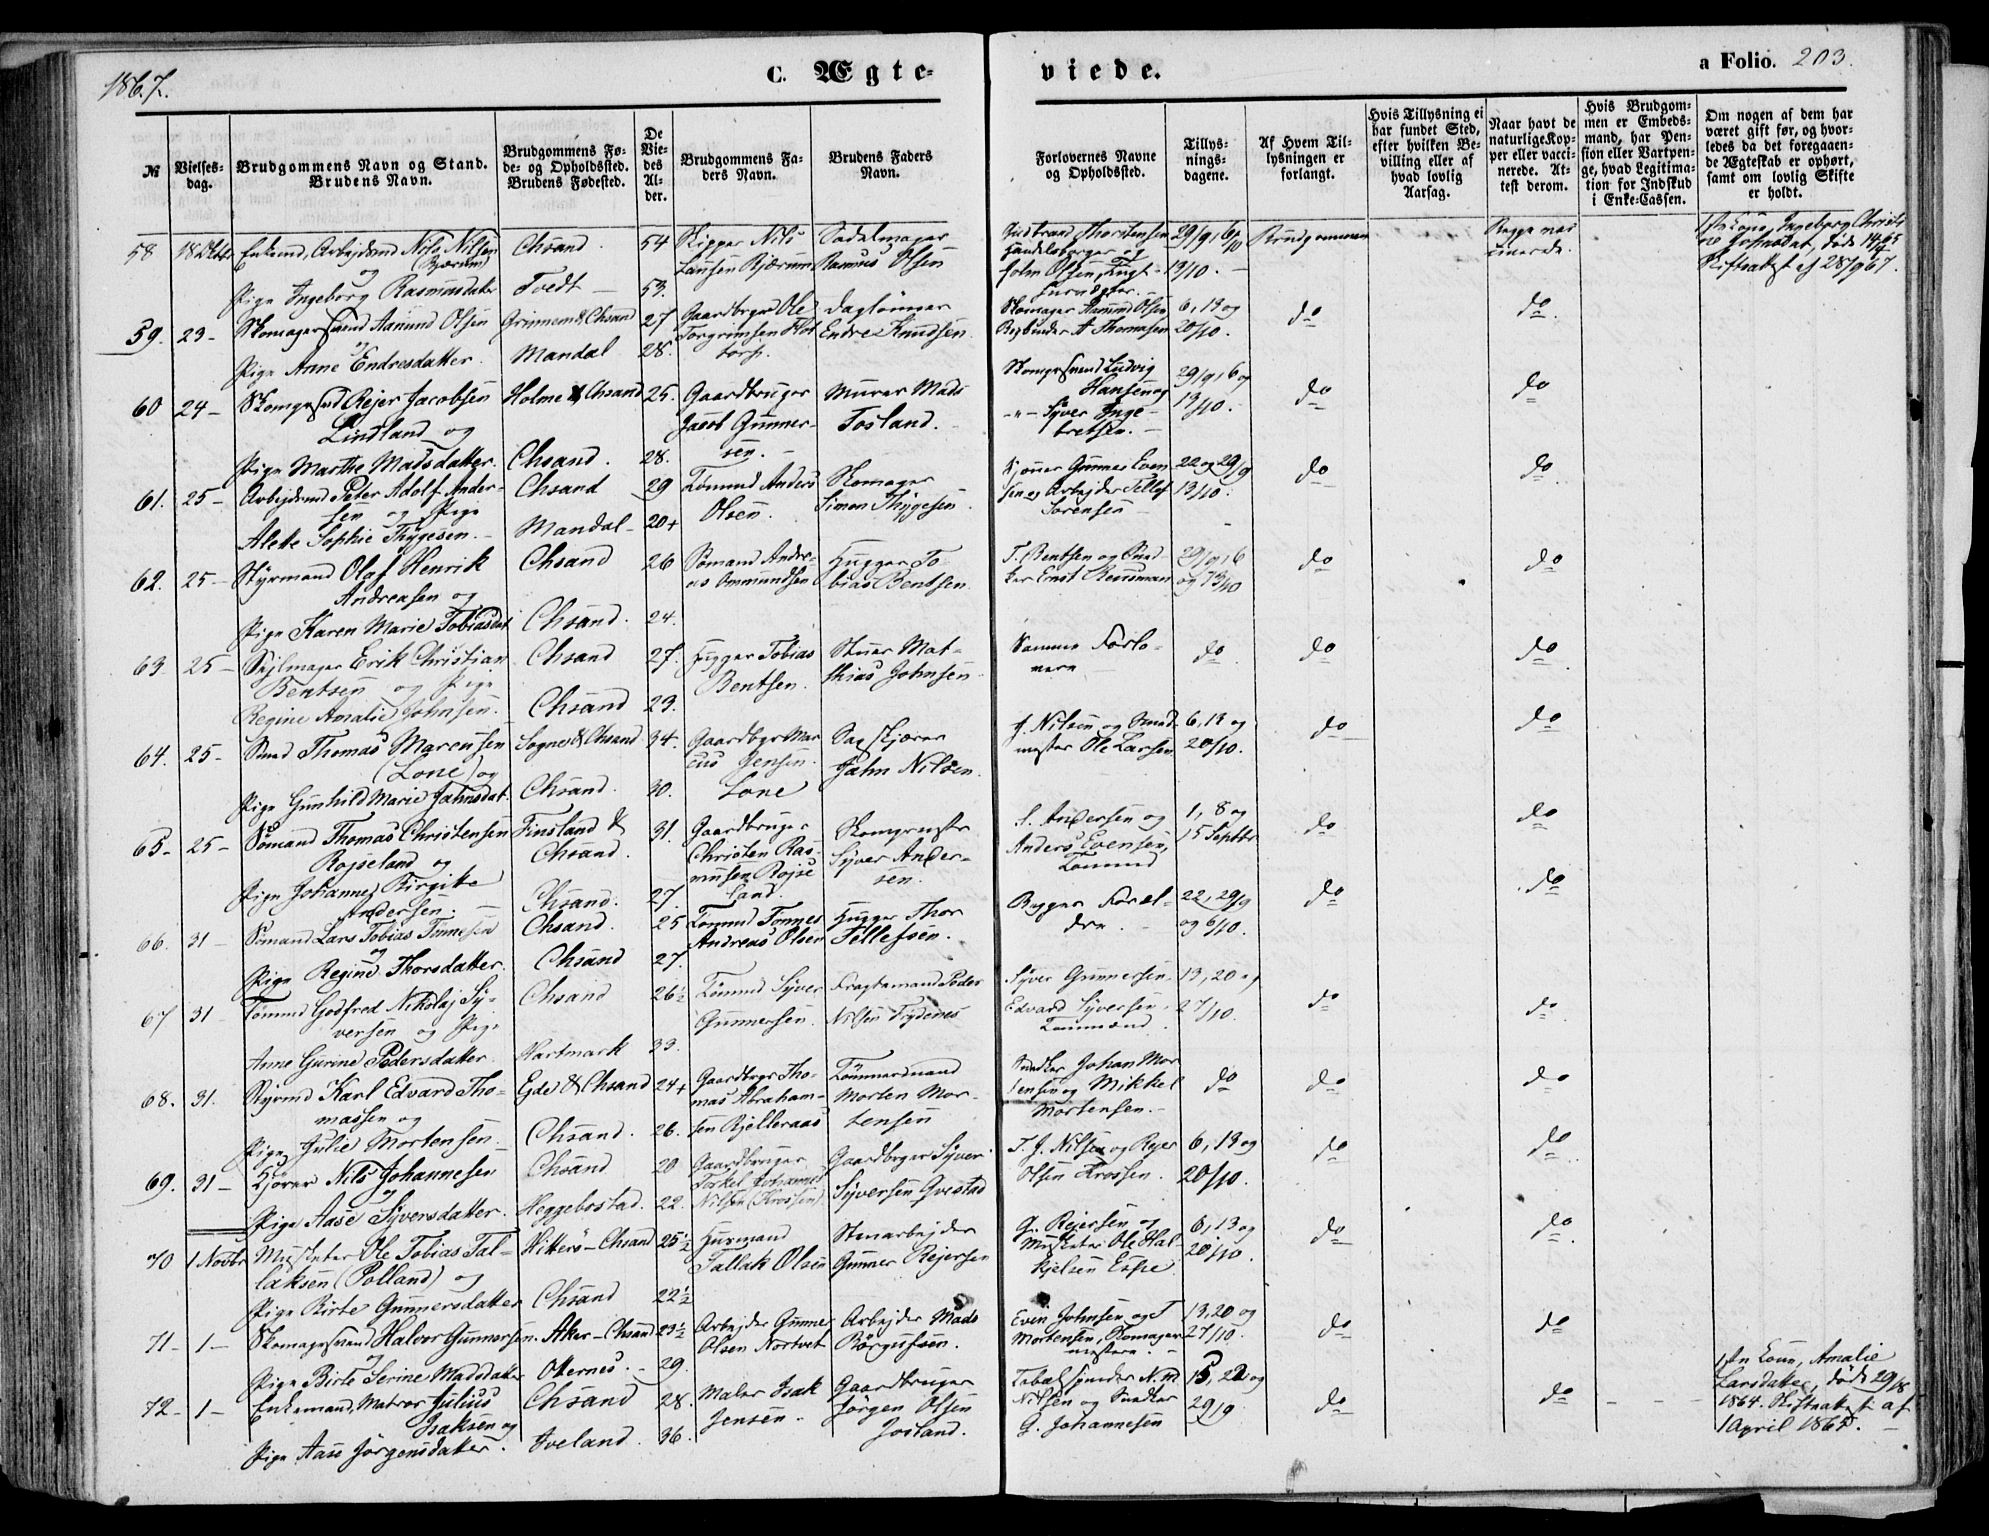 1867.
C. Ægte-
viede.
a Folio. 203.
№
Vielses-
dag.
Brudgommens Navn og Stand.
Brudens Navn.
Brudgommens Fø-
de- og Opholdssted.
Brudens Fødested.
De
Vie-
des
Al-
der.
Brudgommens Fa-
ders Navn.
Brudens Faders
Navn.
Forlovernes Navne
og Opholdssted.
Tillys-
nings-
dagene.
Af Hvem Til-
lysningen er
forlangt.
Hvis Tillysning ei
har fundet Sted,
efter hvilken Be-
villing eller af
hvad lovlig
Aarsag.
Naar havt de
naturlige Kop-
per eller vacci-
nerede. At-
test derom.
Hvis Brudgom-
men er Embeds-
mand, har Pen-
sion eller Vartpen-
ge, hvad Legitima-
tion for Indskud
i Enke-Cassen.
Om nogen af dem har
været gift før, og hvor-
ledes da det foregaaen-
de Ægteskab er ophørt,
samt om lovlig Skifte
er holdt.
58
18 Oktbr
Enkemd, Arbejdsmd Nils Nilsen
(Bjærum)
og
Pige Ingeborg Rasmusdatter
Chsand
Tvedt
54
53.
Skipper Nils
Laursen Bjærum
Sadelmager
Rasmus Olsen
Thorstensen
og
John Olsen
29/9, 6/10
13/10.
Brudgommen
Begge vac
cinerede.
1ste Kone, Ingeborg Christi
ne død 14/4 65
Skifteattest af 28/9 67.
59.
23-
Skomagersvend Aanund Olsen
og
Pige Anne Endresdatter.
Grimem & Chsand
Mandal
27
28.
Gaardbrgr Ole
Torgrimsen
Dagløhner
Endre Knudsen.
Skomager Aanund Olsen
Bogbinder A Thomasen
6, 13 og
20/10.
do
do
60
24-
Skomgrsvd Rejer Jacobsen
Lindland og
Pige Marthe Madsdatter.
Holme & Chsand
Chsand.
25.
28.
Gaardbruger
Jacob Gunner-
sen.
Murer Mads
Fosland.
Skomgrsvend Ludvig
Hansen og
-"- Syver Inge-
bretsen.
29/9, 6 og
13/10.
do
do
61.
25-
Arbejdsmd Peter Adolf Ander-
sen og Pige
Alette Sophie Thygesen.
Chsand
Mandal
29
20+
Tømmd Anders
Olsen.
Skomager
Simon Thygesen.
Gunnar Even
sen og Arbejder Tellef
Sørensen
22 og 29/9
13/10.
do
do
62.
25-
Styrmand Olaf Henrik
Andreasen og
Pige Karen Marie Tobiasdat
Chsand
Chsand.
26
24.
Sømand Andre-
as Ommundsen
Hugger To-
bias Bentsen
T. Bentsen og Sned
ker Ernst
29/9, 6
og 13/10
do
do
63.
25-
Sejlmager Erik Christian
Bentsen og Pige
Regine Amalie Johnsen.
Chsand
Chsand
27.
23.
Hugger Tobias
Bentsen.
Stuer Mat-
thias Johnsen
Samme Forlo-
vere
do.
do
do
64.
25-
Smed Thomas Marcusen
(Lone) og
Pige Gunhild Marie Jahnsdat.
Sogne & Chsand
Chsand.
34.
30.
Gaardbgr Mar
cus Jensen.
Lone
Sagskjærer
Jahn Nilsen.
J. Nilsen og Smed-
mester Ole Larsen
6, 13 og
20/10.
do
do
65-
25-
Sømand Thomas Christensen
Rojseland og
Pige Johanne Birgitte
Andersen.
Finsland &
Chsand.
Chsand.
31.
27.
Gaardbruger
Christen Ras-
musen Rojse
land.
Skomgrmster
Syver Ander-
sen.
S. Andersen og
Anders Evensen,
Tømmd
1, 8 og
15 Septbr
do
do
66.
31-
Sømand Lars Tobias Tønnesen
og
Pige Regine Thorsdatter.
Chsand.
Chsand
25
27.
Tømmd Tønnes
Andreas Olsen
Hugger Thor
Tellefsen.
Begges Foræl-
dre.
22, 29/9
og 6/10.
do
do
67
31
Tømmd Godfred Nikolaj Sy-
versen og Pige
Anne Gurine Pedersdatter.
Chsand
Hartmark
26½
33.
Tømmd Syver
Gunnersen.
Fragtemand Peder
Nilsen Frydenes
Syver Gunnersen.
Edvard Syversen,
Tømmænd.
13, 20 og
27/10.
do
do.
68.
31.
Styrmd Karl Edvard Tho-
massen og
Pige Julie Mortensen.
Egde & Chsand
Chsand.
24+
26.
Gaardbrgr Tho-
mas Abraham-
sen Kjelleraas
Tømmermand
Morten Mor-
tensen
Snedker Johan Mor
tensen og Mikkel
Mortensen.
do
do
do
69.
31-
Kjører Nils Johannesen
og
Pige Aase Syversdatter.
Chsand
Heggebostad.
20
22.
Gaardbruger
Torkel Johannes
Nilsen (Krossen)
Gaardbrger Syver
Syversen Gvestad
T. J. Nilsen og Rejer
Olsen Krossen.
6, 13 og
20/10.
do
do
70
1 Novbr
Musketer Ole Tobias Tal-
laksen (Polland) og
Pige Birte Gunnersdatter
Hitterø-Chsand
Chsand
25½
22½
Husmand
Tallak Olsen
Stenarbejder
Gunner Rejersen
G. Rejersen og
Musketer Ole Hal-
kjelsen Espe
6, 13 og
20/10.
do
do
71-
1-
Skomagersvend Halvor Gunnersen.
og
Pige Birte Serine Madsdatter
Aker-Chsand
Oternes.
23½
29.
Arbejder Gunner
Olsen Nortvet
Arbejder Mads
Børgusen.
Even Johnsen og T
Mortensen, Skomager
mestere.
13, 20 og
27/10.
do
do
72-
1-
Enkemand, Matros Julius
Isaksen og
Pige Aase Jørgensdatter.
Chsand
Iveland.
28.
36.
Maler Isak
Jensen.
Gaardbruger
Jørgen Olsen
Jostand.
Tobakspinder N. M
Nilsen og Snedker
G. Johannesen
15, 22 og
29/9
do
do
1ste Kone, Amalie
Larsdatter, død 29/8
1864. Skifteattest af
1 April 1865.